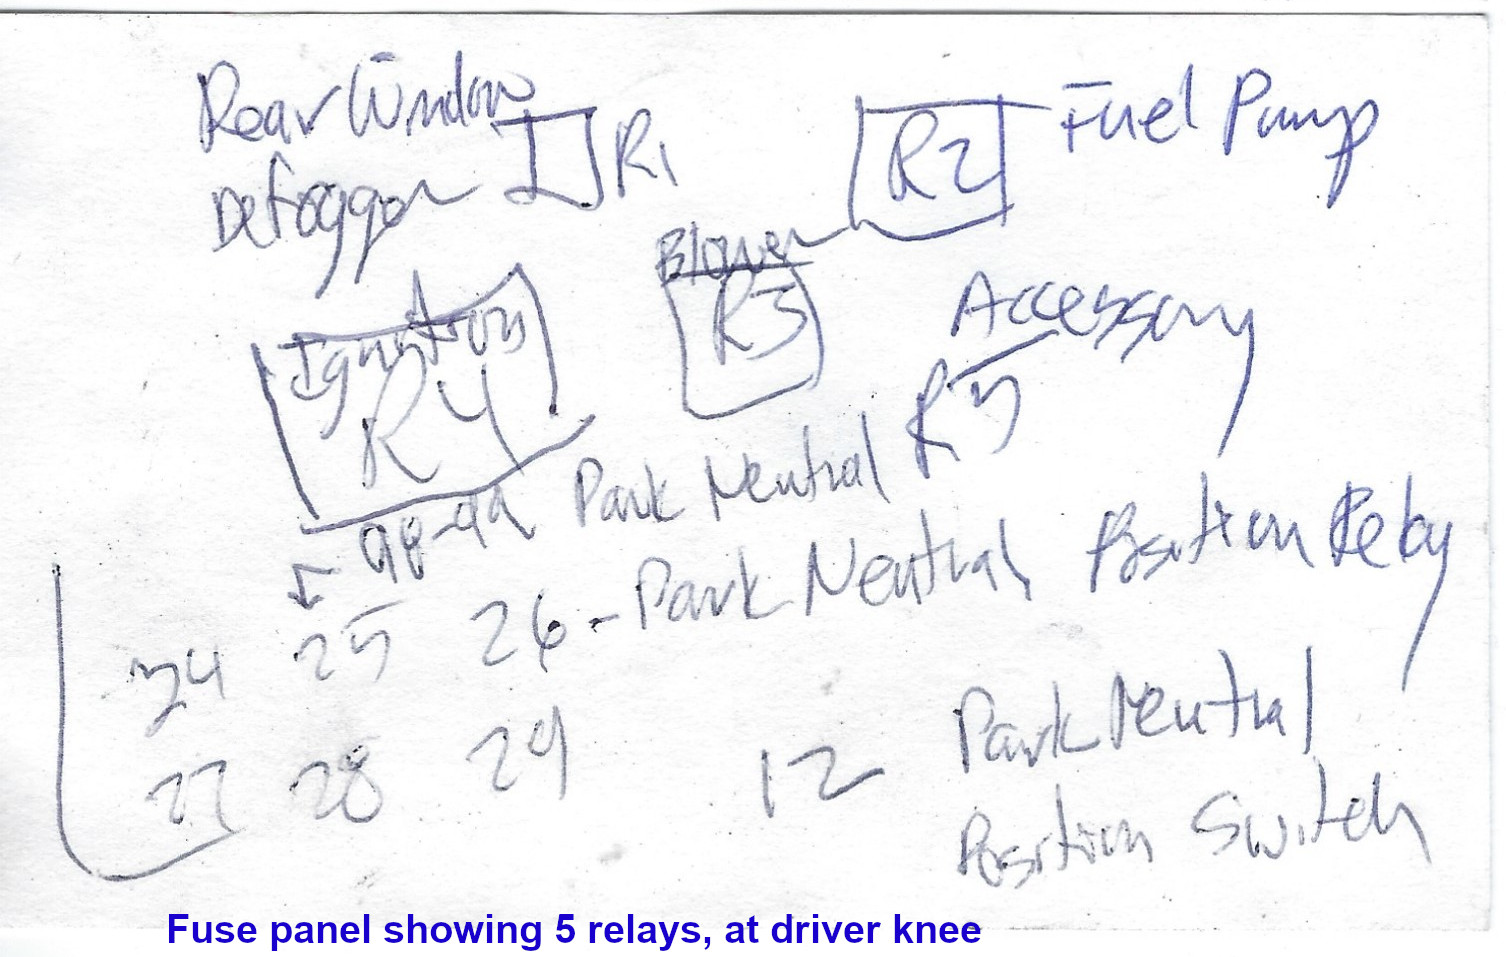 Rear Window
Defogger R1
R2 Fuel Pump
Blower
R3
Accessory
R5
Ignition
R4
98-99 Park Neutral
24 25 26 - Park Neutral Position Relay
27 28 29
12 Park Neutral
Position Switch
Fuse panel showing 5 relays, at driver knee